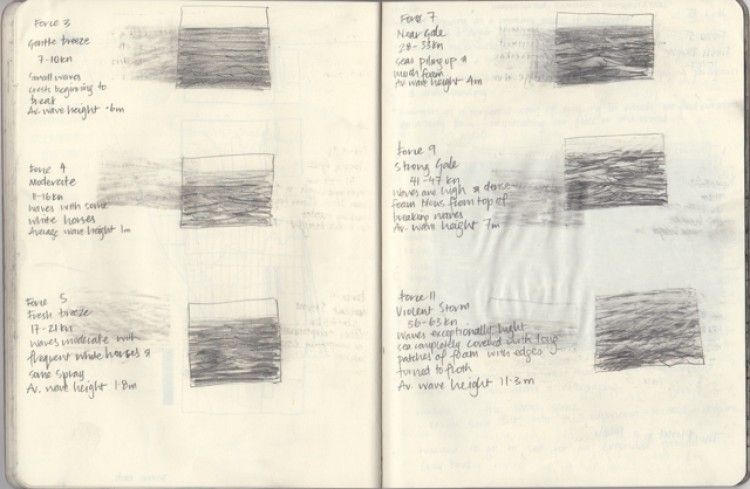 Force 3
Gentle breeze
7-10kn
Small waves
crests beginning to
break
Av. wave height .6m
Force 4
Moderate
11-16kn
waves with some
white horses
Average wave height 1m
Force 5
Fresh breeze
17-21kn
waves moderate with
frequent white horses &
some spray
Av. wave height 1.8m
Force 7
Near Gale
28-33kn
seas piling up &
much foam
Av wave height 4m
Force 9
Strong Gale
41-47kn
waves are high & dense
foam blows from top of
breaking waves
Av. wave height 7m
Force 11
Violent Storm
56-63kn
waves exceptionally
sea completely covered with long
patches of foam with edges
turned to froth
Av. wave height 11.3m